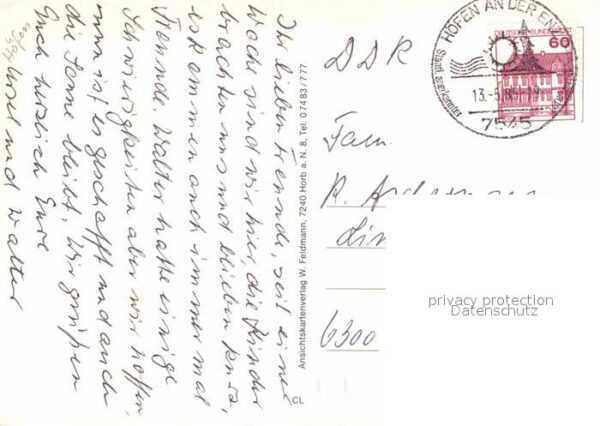 Höfen
Ihr lieben Freunde, seit einer
Woche sind wir hier, die Kinder
brachten uns und blieben kurz,
es kommen auch immer mal
Freunde. Walter hatte einige
Schwierigkeiten aber wir hoffen,
nun ist es geschafft und auch
die Sonne bleibt. Wir grüßen
Euch herzlich Eure
und Walter
Ansichtskartenverlag W. Feldmann, 7240 Horb a. N. 8, Tel. 07483/777
CL
HÖFEN AN DER ENZ
Staatl. anerkannter
13.-5.
7545
DEUTSCHE BUNDESPOST
60
DDR
Fam.
R.
6300
privacy protection
Datenschutz